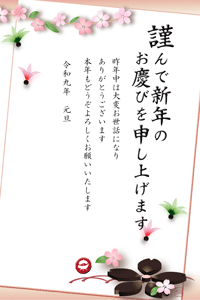 謹んで新年の
お慶びを申し上げます
昨年中は大変お世話になり
ありがとうございます
本年もどうぞよろしくお願いいたします
令和九年　元旦